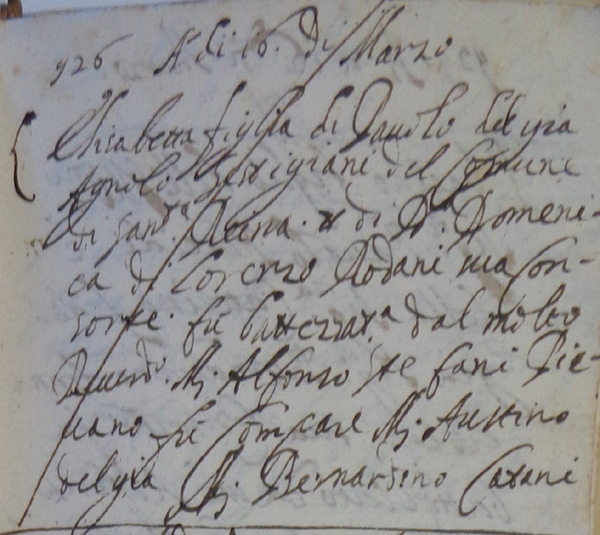 926 A dì 16. di Marzo
Elisabetta figlia di Pauolo del già
Agnolo del Comune
di San.ta Reina. e di D.a Domeni-
ca di Lorenzo Rodani sua Con-
sorte. fù battezzat.a dal molto
Reuerdo. M. Alfonso Stefani Pie-
uano fù Compare M. Austino
del già M. Bernardino Catani